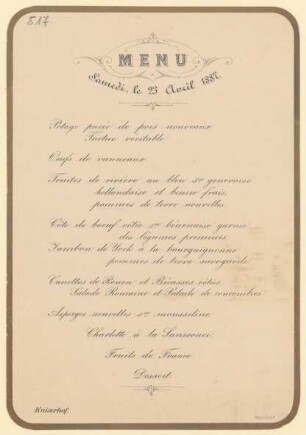 517
MENU
Samedi, le 23 Avril 1887.
Potage purée de pois nouveaux
Tortue véritable
Oeufs de vanneaux
Truites de rivière au bleu sce genevoise
hollandaise et beurre frais,
pommes de terre nouvelles.
Côte de boeuf rôtie sce béarnaise garnie
des légumes primeurs
Jambon de York à la bourguignonne
pommes de terre savoyarde
Canetons de Rouen et Bécasses rôties
Salade Romaine et Salade de concombres
Asperges nouvelles sce mousseline
Charlotte à la Sanssouci
Fruits de France
Dessert
Kaiserhof.